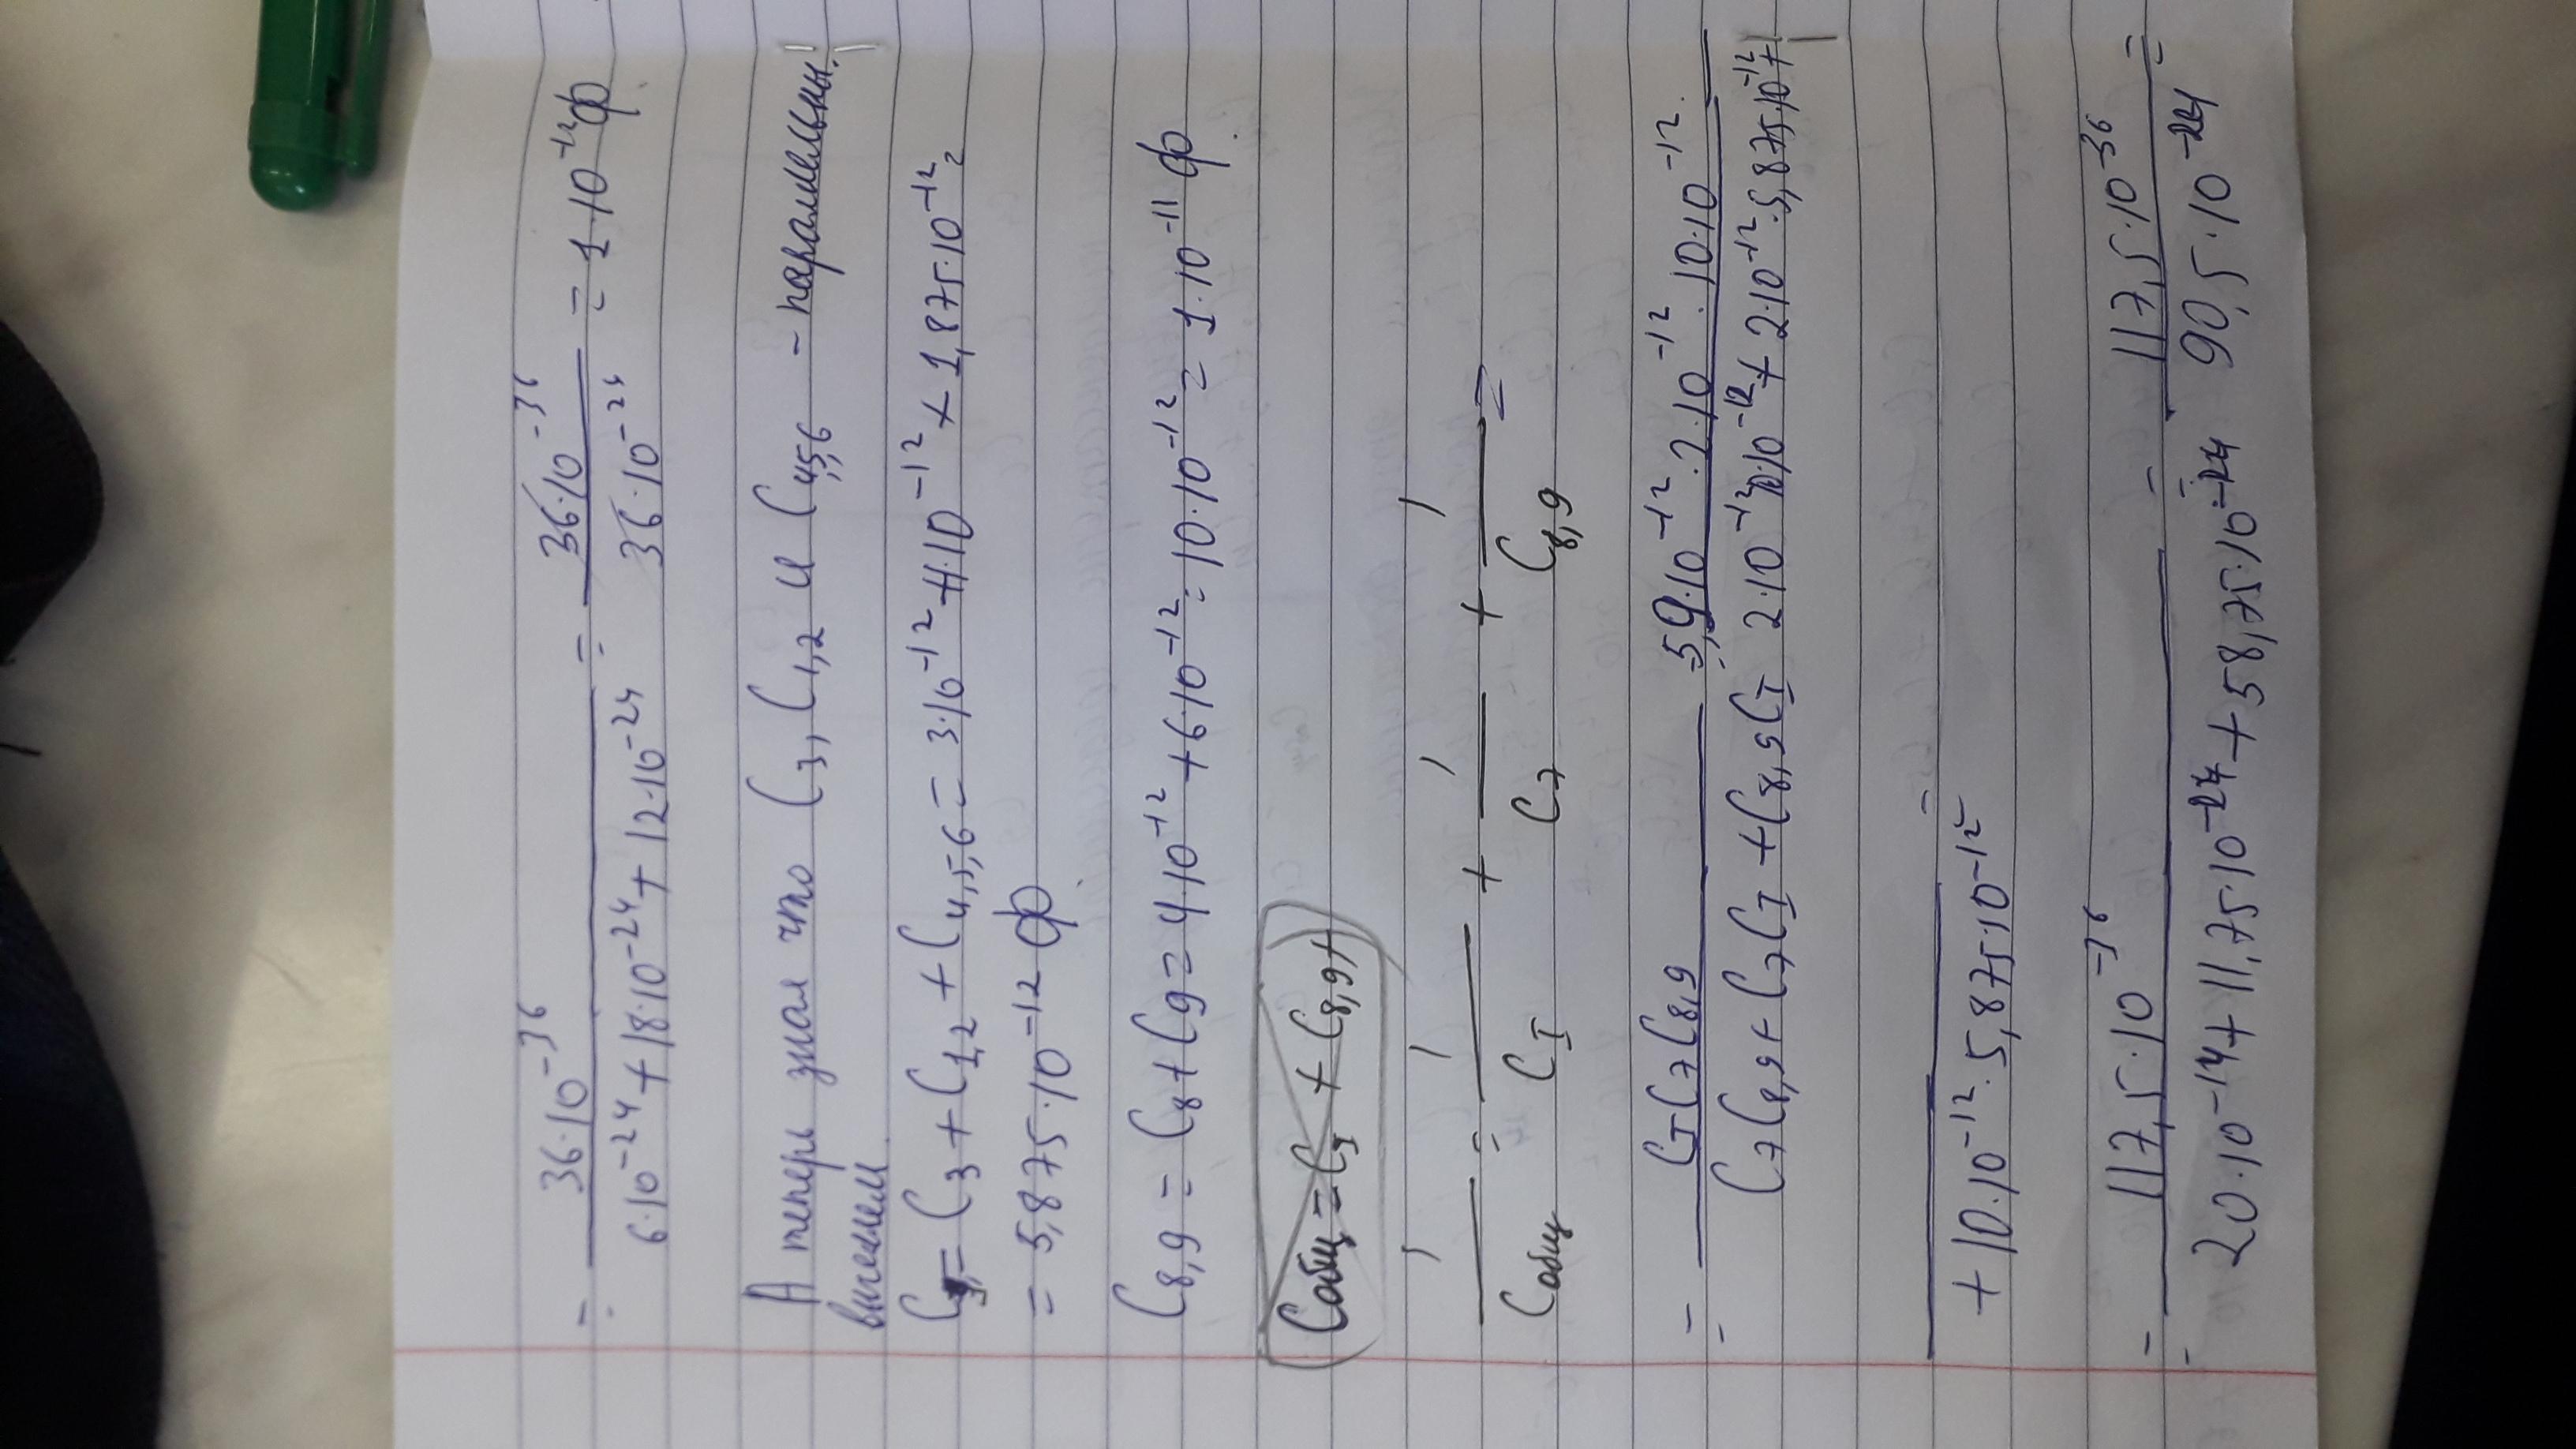 = 36·10⁻³⁶ / 6·10⁻²⁴ + 18·10⁻²⁴ + 12·10⁻²⁴ = 36·10⁻³⁶ / 36·10⁻²⁴ = 1·10⁻¹²ф
А теперь зная что C₃, C₁,₂ и C₄,₅,₆ - параллельны.
вычислим
= C₃ + C₁,₂ + C₄,₅,₆ = 3·10⁻¹² + 1·10⁻¹² + 1,875·10⁻¹² =
= 5,875·10⁻¹² ф.
C₈,₉ = C₈ + C₉ = 4·10⁻¹² + 6·10⁻¹² = 10·10⁻¹² = 1·10⁻¹¹ ф.
Cобщ = C_I + C₈,₉ +
1 / Cобщ = 1 / C_I + 1 / C₇ + 1 / C₈,₉ =
= C_I C₇ C₈,₉ / C₇ C₈,₉ + C₇ C_I + C₈,₉ C_I = 5,9·10⁻¹²·2·10⁻¹²·10·10⁻¹² / 2·10⁻¹²·10·10⁻¹² + 2·10⁻¹²·5,875·10⁻¹² +
+ 10·10⁻¹²·5,875·10⁻¹² =
= 117,5·10⁻³⁶ / 20·10⁻¹⁴ + 11,75·10⁻²⁴ + 58,75·10⁻²⁴ = 117,5·10⁻³⁶ / 90,5·10⁻²⁴ =